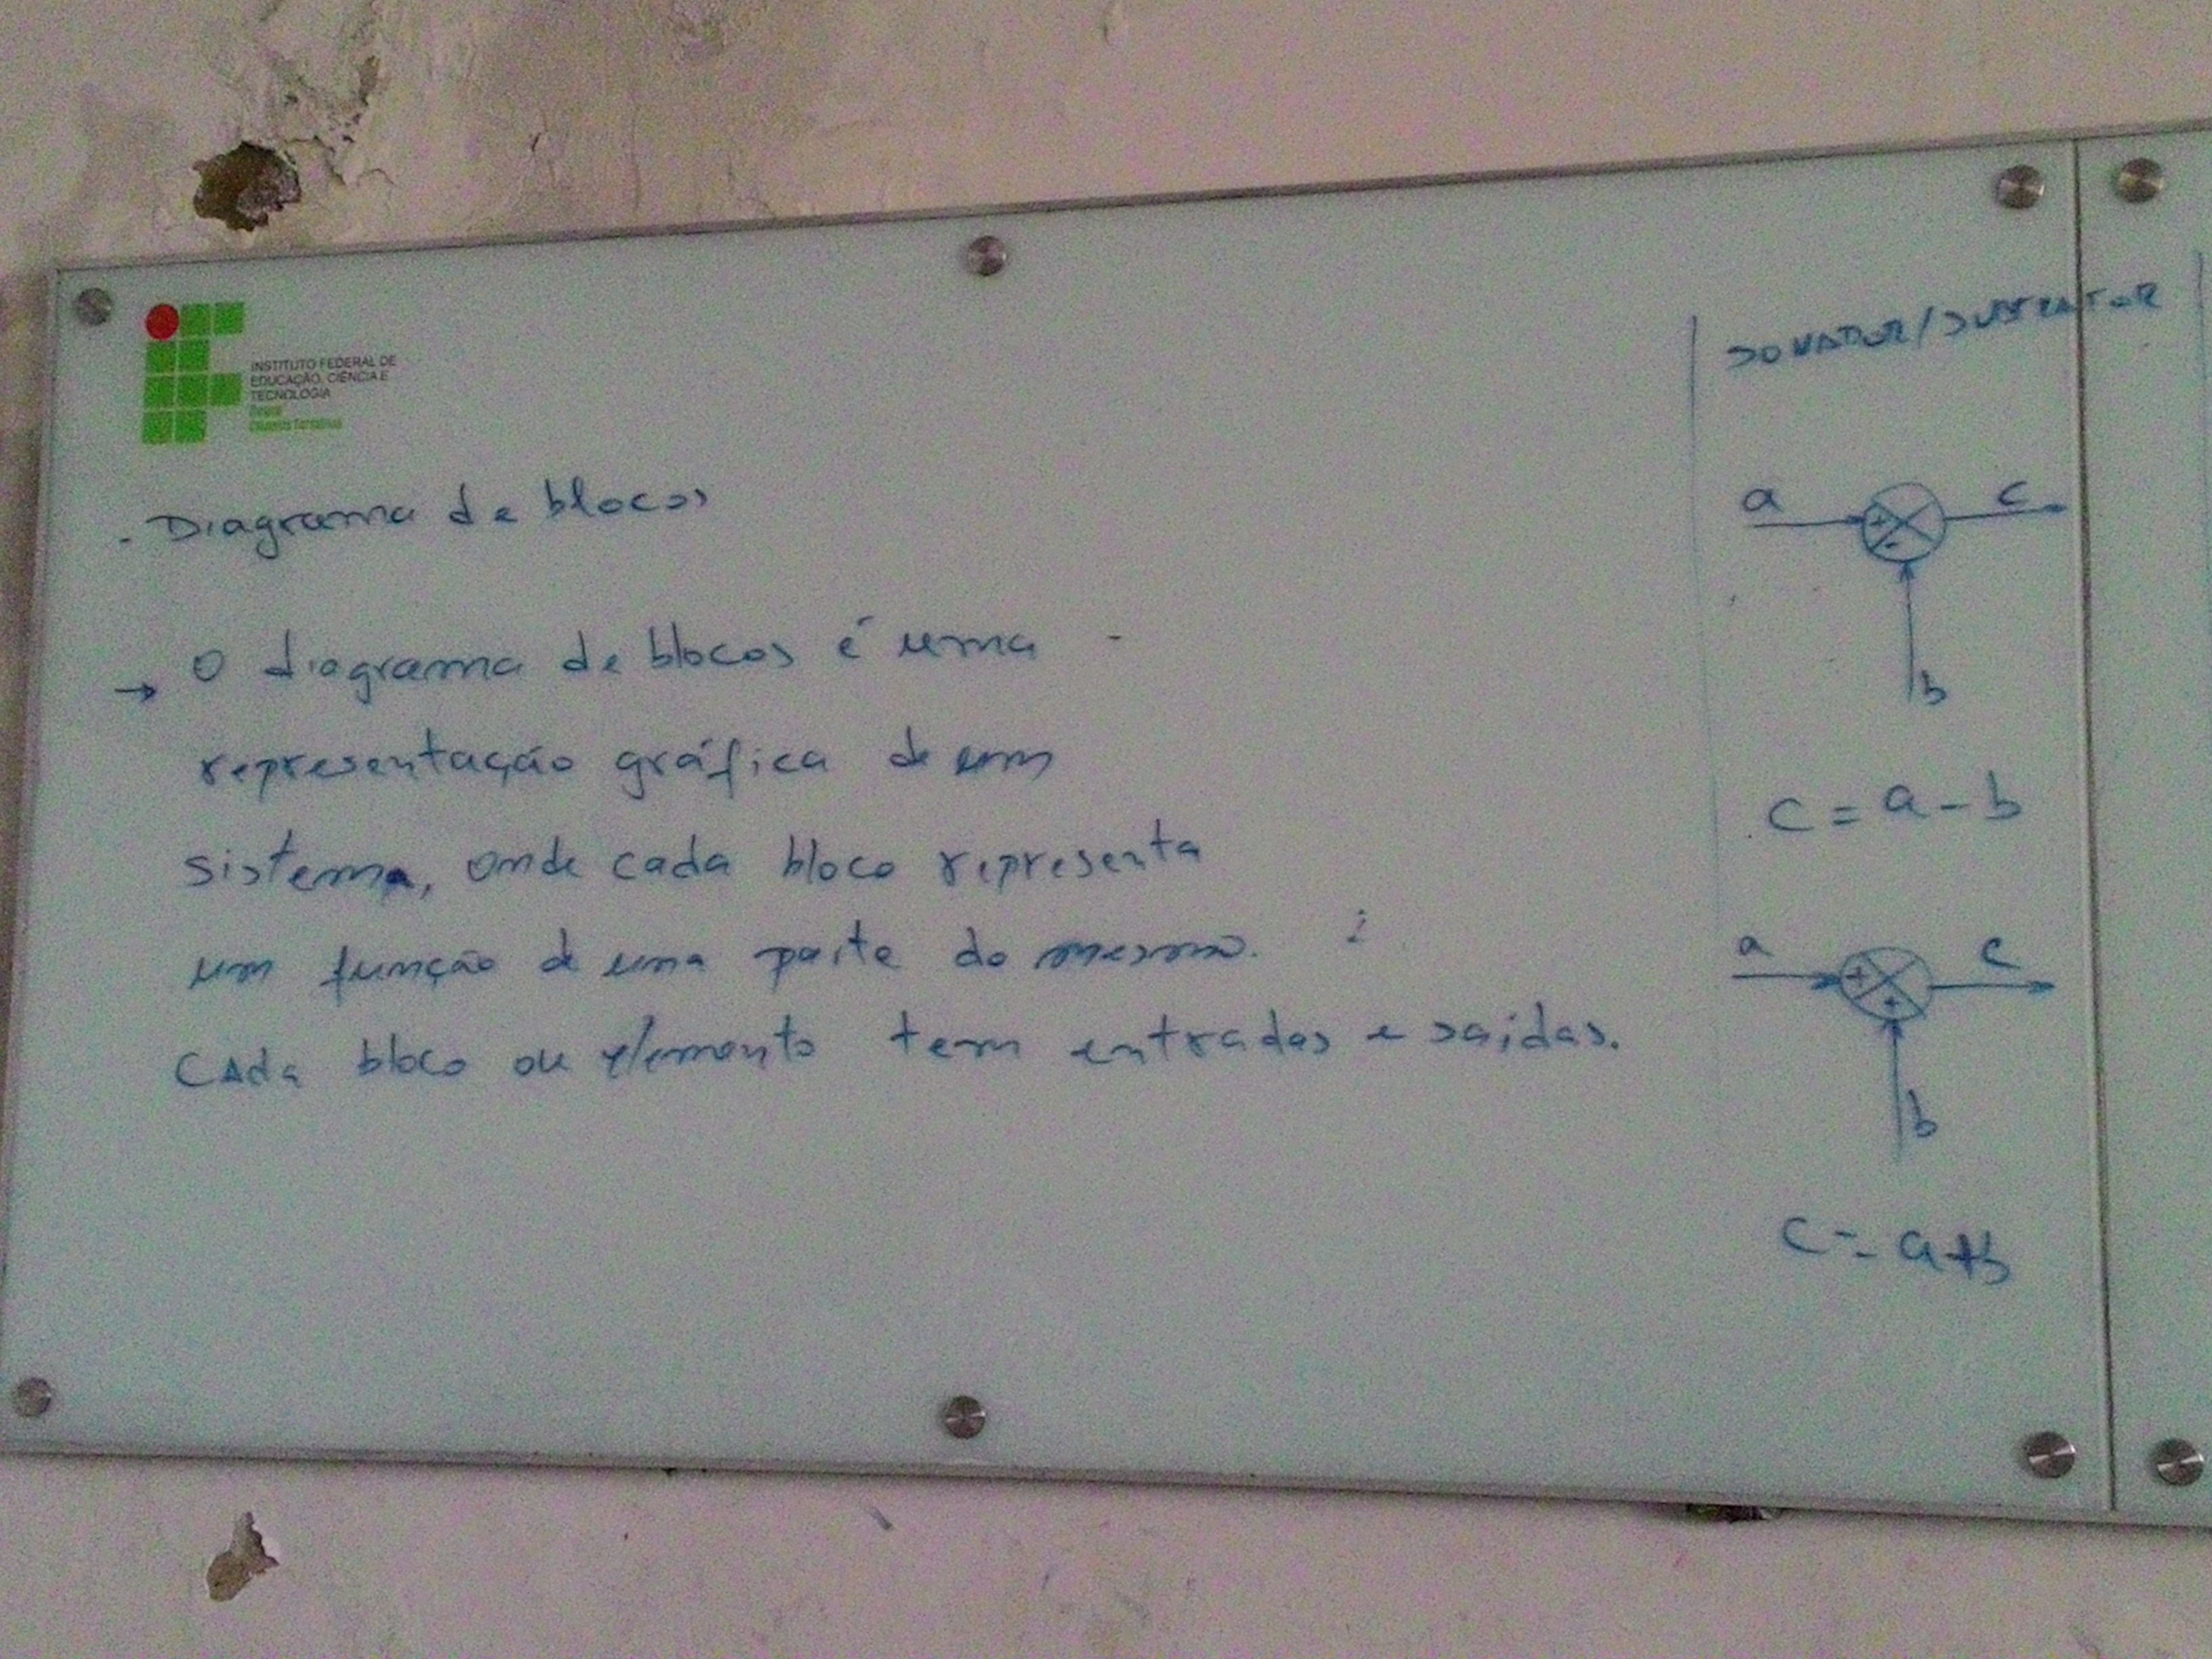 INSTITUTO FEDERAL DE
EDUCAÇÃO, CIÊNCIA E
TECNOLOGIA
Paraná
- Diagrama de blocos
→ O diagrama de blocos é uma
representação gráfica de um
sistema, onde cada bloco representa
um função de uma parte do mesmo.
CAda bloco ou elemento tem entradas e saídas.
SOMADOR/SUBTRATOR
a + - c
b
c = a - b
a + + c
b
c = a+b